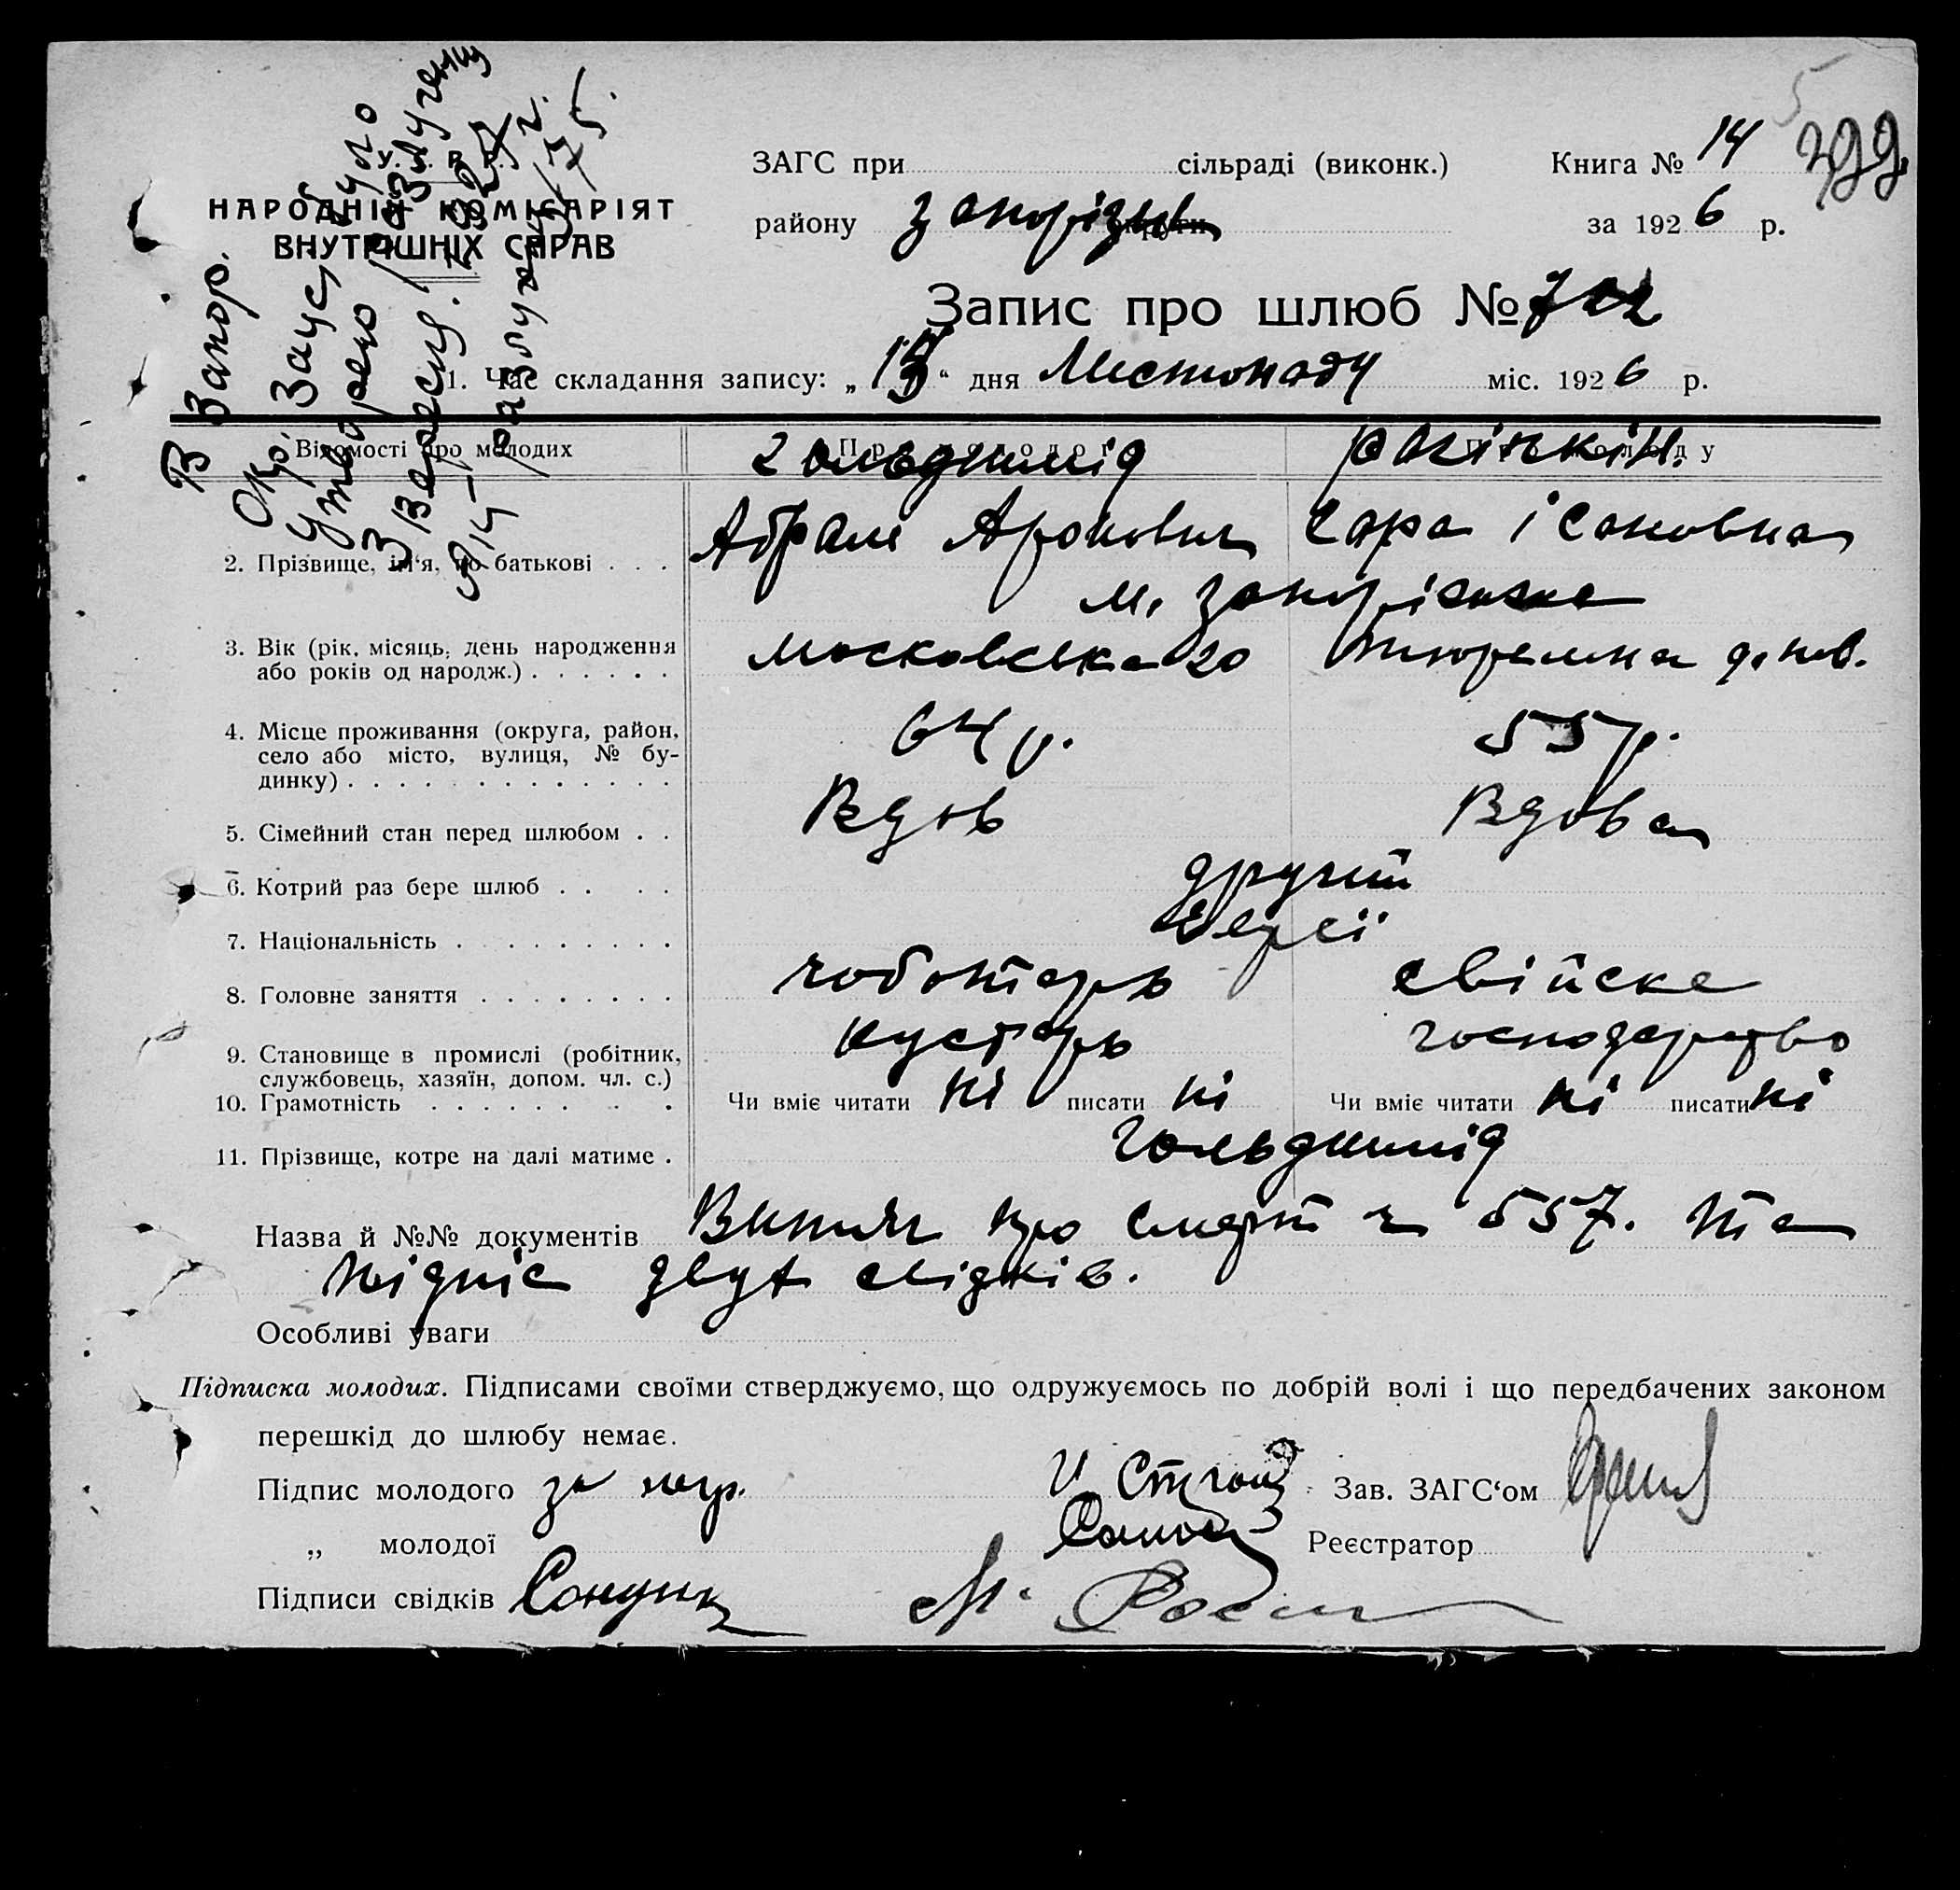 В Запор.
Окр. Загсі було
утворено розлучення
3 Вересня 1927 г.
У.С.Р.Р.
НАРОДНІЙ КОМІСАРІЯТ
ВНУТРІШНІХ СПРАВ
ЗАГС при сільраді (виконк.) Книга № 14
району округи за 1926 р.
Запис про шлюб №
1. Час складання запису: „ “ дня Листопаду міс. 1926 р.
Відомості про молодих Про молодого Про молоду
Гольдшмід
2. Прізвище, ім'я, по батькові . . . Абрам Аронович Сара Ісаковна
м. Запоріжжя
3. Вік (рік, місяць, день народження
або років од народж.) . . . . . . Московська 20 Тюремна
4. Місце проживання (округа, район,
село або місто, вулиця, № бу-
динку) . . . . . . . . . . . . . 64 р. 55 р.
5. Сімейний стан перед шлюбом . . Вдов Вдова
6. Котрий раз бере шлюб . . . . другий
7. Національність . . . . . . . . . Євреї
8. Головне заняття . . . . . . . . чоботарь свійске
9. Становище в промислі (робітник,
службовець, хазяїн, допом. чл. с.) кустарь господарство
10. Грамотність . . . . . . . . Чи вміє читати ні писати ні Чи вміє читати ні писати ні
11. Прізвище, котре на далі матиме . Гольдшмід
Назва й №№ документів Випис про смерть ч 557. та
підпис двух свідків.
Особливі уваги
Підписка молодих. Підписами своїми стверджуємо, що одружуємось по добрій волі і що передбачених законом
перешкід до шлюбу немає.
Підпис молодого за негр. Зав. ЗАГС‘ом
„ молодої Реєстратор
Підписи свідків